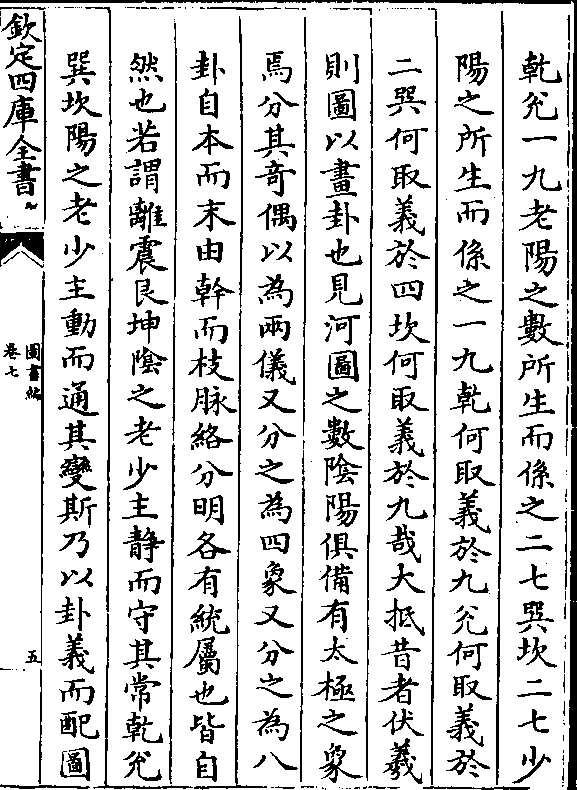 乾兊一九老陽之數所生而係之二七巽坎二七少
陽之所生而係之一九乾何取義於九兊何取義於
二巽何取義於四坎何取義於九哉大抵昔者伏羲
則圖以畫卦也見河圖之數陰陽俱備有太極之象
焉分其奇偶以為兩儀又分之為四象又分之為八
卦自本而末由幹而枝脉絡分明各有統屬也皆自
然也若謂離震艮坤陰之老少主静而守其常乾兊
巽坎陽之老少主動而通其變斯乃以卦義而配圖
欽定四庫全書
圖書編
卷七
五